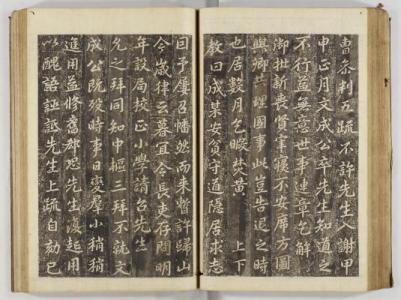 曹參判五疏不許先生入謝甲
申正月文成公卒先生知道之
不行益無意世事連章乞解
御批新喪賢宰寢不安席方圖
與卿共理國事此豈告退之時
也居數月乞暇焚黃上下
教曰成某安貧守道隱居求志
因予屢召幡然而来暫許歸山
今歲律云暮宜令長吏存問明
年設局校正小學請召先生
允之拜同知中樞三拜不就文
成公既歿時事日變群小稍稍
進用益修舊郤恐先生復起用
以醜語誣詆先生上疏自劾已